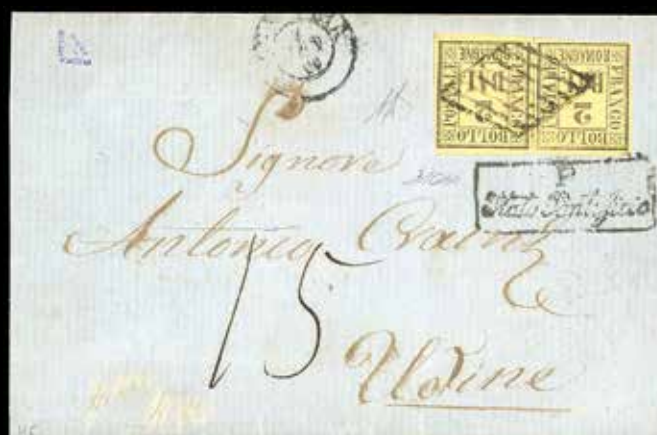 FRANCO BOLLO POSTALE ROMAGNE BAJ 2
FRANCO BOLLO POSTALE ROMAGNE BAJ 2
P
Stato Pontificio
Signore
Antonio
15
Udine